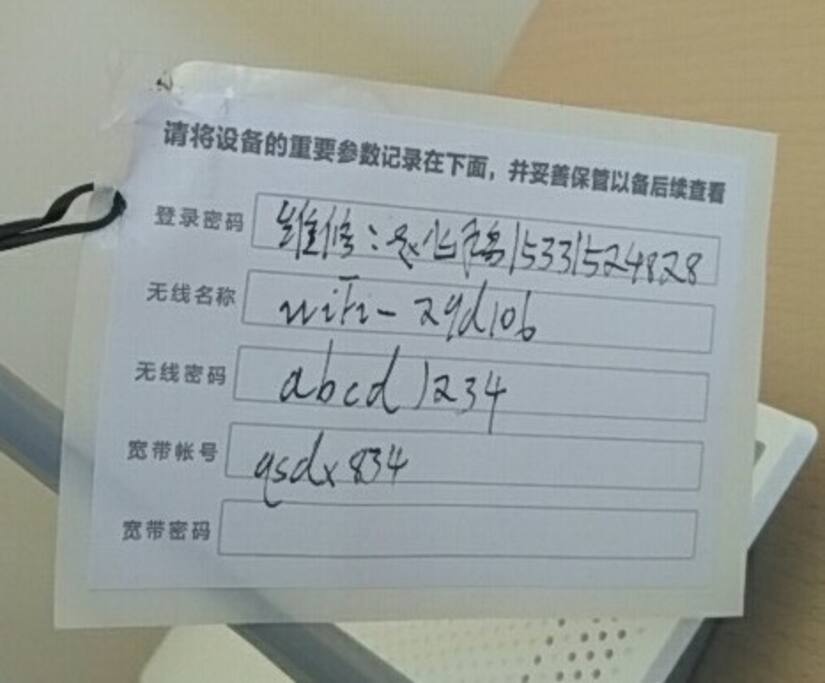 请将设备的重要参数记录在下面，并妥善保管以备后续查看
登录密码 维修：赵 15331524828
无线名称 wifi-29d106
无线密码 abcd1234
宽带帐号 qsdx834
宽带密码